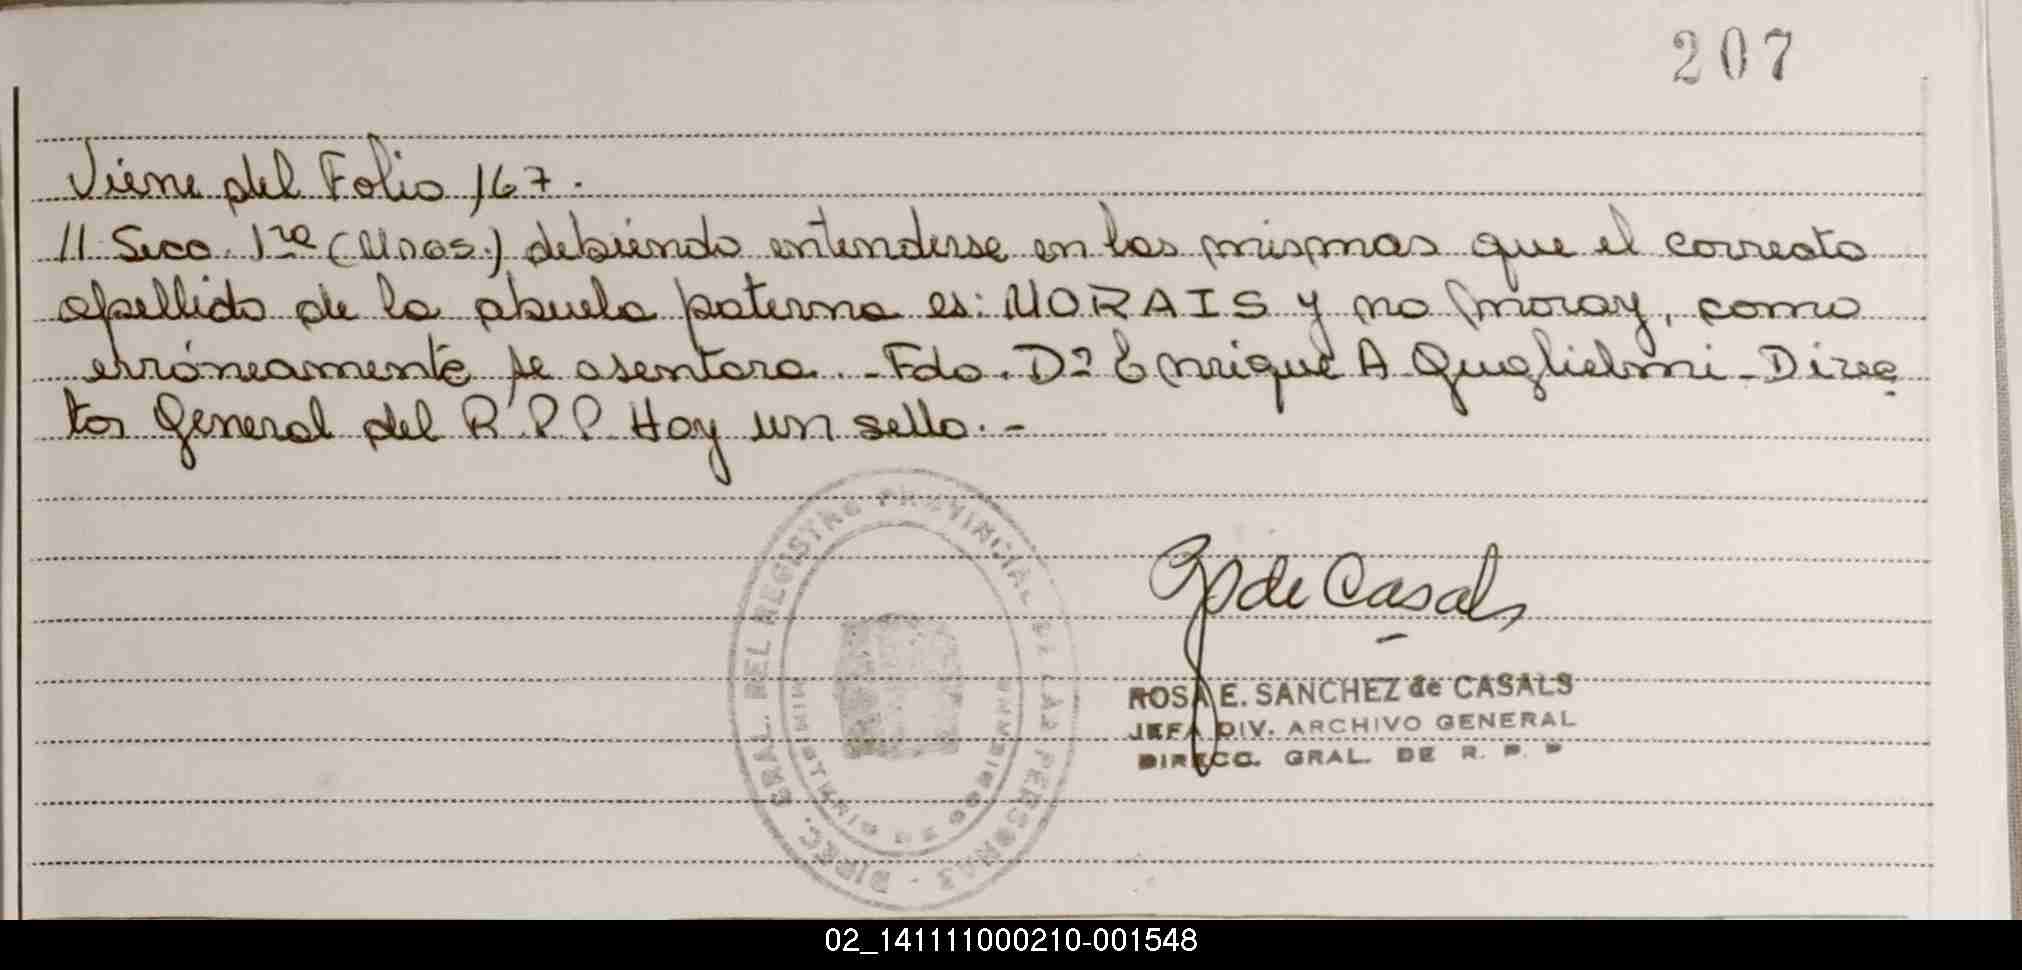 207
Viene del Folio 167.
11 Secc. 1ra (Unos.) debiendo entenderse en las mismas que el correcto
apellido de la abuela paterna es: MORAIS y no moray, como
erróneamente se asentara.-Fdo. Dn Enrique A Guglielmi-Direc
tor General del R.P.P. Hay un sello.-
DIREC. GRAL. DEL REGISTRO PROVINCIAL DE LAS PERSONAS
MINISTERIO DE GOBIERNO
R de Casals
ROSA E. SANCHEZ de CASALS
JEFA DIV. ARCHIVO GENERAL
DIRECC. GRAL. DE R. P. P
02_141111000210-001548